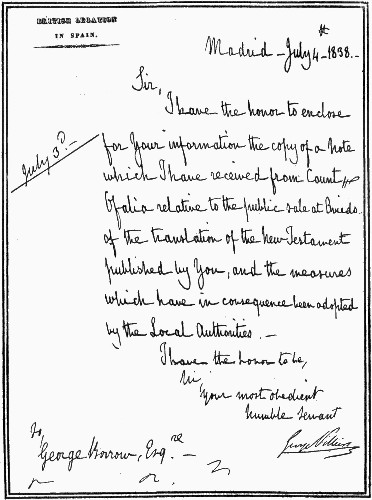 BRITISH LEGATION
IN SPAIN.
Madrid - July 4th - 1838. -
Sir,
I have the honor to enclose
July 3d. -
for Your information the copy of a Note
which I have received from Count
Ofalia relative to the public sale at
of the translation of the New Testament
published by You, and the measures
which have in consequence been adopted
by the Local Authorities. -
I have the honor to be,
Sir,
Your most obedient
humble servant
George Villiers
To,
George Borrow, Esqre. -